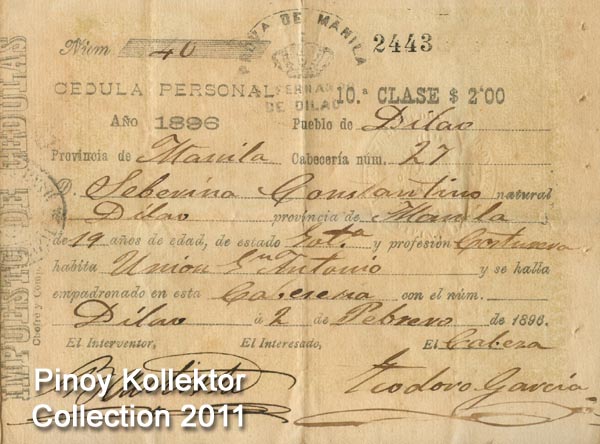 PROVA DE MANILA
Núm 40
2443
CEDULA PERSONAL
S. FERNANDO
DE DILAO
10.ª CLASE $ 2'00
Año 1896
Pueblo de Dilao
Provincia de Manila Cabecería núm. 27
D. Seberina Constantino natural
Dilao provincia de Manila
de 19 años de edad, de estado Solt.a y profesión Costurera
habita Union Sn Antonio y se halla
empadronado en esta Cabeseria con el núm.
Dilao á 2 de Febrero de 1896.
El Interventor, El Interesado, El Cabeza
Teodoro Garcia
IMPUESTO DE CEDULAS
Chofre y Comp.
Pinoy Kollektor
Collection 2011